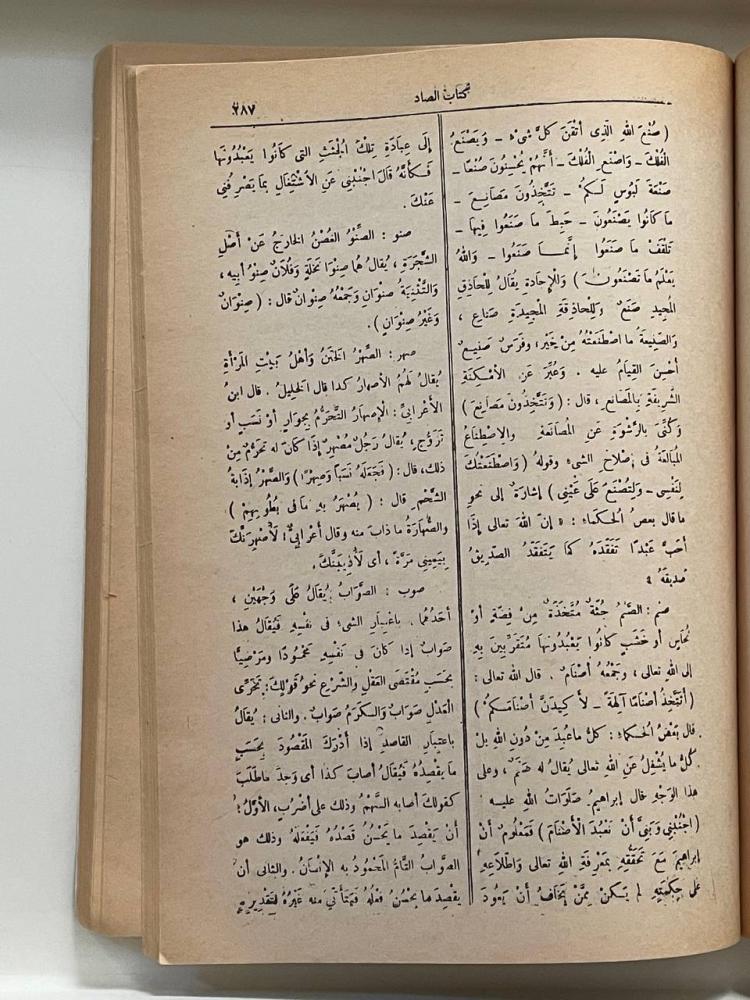 كتاب الصاد
٢٨٧
( صُنْعَ اللهِ الَّذِى أَتْقَنَ كُلَّ شَىْءٍ - وَيَصْنَعُ
الْفُلْكَ - وَاصْنَعِ الْفُلْكَ - أَنَّهُمْ يُحْسِنُونَ صُنْعًا -
صَنْعَةَ لَبُوسٍ لَكُمْ - تَتَّخِذُونَ مَصَانِعَ -
مَا كَانُوا يَصْنَعُونَ - حَبِطَ مَا صَنَعُوا فِيهَا -
تَلْقَفْ مَا صَنَعُوا إِنَّمَا صَنَعُوا - وَاللهُ
يَعْلَمُ مَا تَصْنَعُونَ ) وَلِلْإِجَادَةِ يُقَالُ لِلْحَاذِقِ
الْمُجِيدِ صَنَعٌ وَلِلْحَاذِقَةِ الْمُجِيدَةِ صَنَاعٌ ،
وَالصَّنِيعَةُ مَا اصْطَنَعْتَهُ مِنْ خَيْرٍ، وَفَرَسٌ صَنِيعٌ
أُحْسِنَ الْقِيَامُ عليه . وَعُبِّرَ عَنِ الْأَمْكِنَةِ
الشَّرِيفَةِ بِالْمَصَانِعِ ، قال : ( وَتَتَّخِذُونَ مَصَانِعَ )
وَكُنِّىَ بِالرِّشْوَةِ عَنِ الْمُصَانَعَةِ وَالِاصْطِنَاعُ
الْمُبَالَغَةُ فى إِصْلَاحِ الشىءِ وقولهُ ( وَاصْطَنَعْتُكَ
لِنَفْسِى - وَلِتُصْنَعَ عَلَى عَيْنِى ) إشارَةٌ إلى نحوِ
ما قال بعضُ الْحُكَمَاءِ : « إنَّ اللهَ تعالى إذَا
أَحَبَّ عَبْدًا تَفَقَّدَهُ كما يَتَفَقَّدُ الصَّدِيقُ
صَدِيقَهُ »
صنم : الصَّنَمُ جُثَّةٌ مُتَّخَذَةٌ مِنْ فِضَّةٍ أوْ
نُحَاسٍ أو خَشَبٍ كانُوا يَعْبُدُونَهَا مُتَقَرِّبِينَ بِهِ
إلى اللهِ تعالى ، وَجَمْعُهُ أَصْنَامٌ . قال اللهُ تعالى :
( أَتَتَّخِذُ أَصْنَامًا آلِهَةً - لَأَكِيدَنَّ أَصْنَامَكُمْ )
قال بَعْضُ الْحُكَمَاءِ : كلُّ ما عُبِدَ مِنْ دُونِ اللهِ بلْ
كلُّ ما يُشْغِلُ عَنِ اللهِ تعالى يُقَالُ لهُ صَنَمٌ ، وعلى
هذا الْوَجْهِ قال إبراهيمُ صَلَوَاتُ اللهِ عليه :
( اجْنُبْنِى وَبَنِىَّ أَنْ نَعْبُدَ الْأَصْنَامَ ) فَمَعْلُومٌ أنَّ
إبراهيمَ مَعَ تَحَقُّقِهِ بمَعْرِفَةِ اللهِ تعالى وَاطِّلَاعِهِ
عَلَى حِكْمَتِهِ لم يَكُنْ مِمَّنْ يَخَافُ أَنْ يَعُودَ
إِلَى عِبَادَةِ تِلْكَ الْجُثَثِ التى كَانُوا يَعْبُدُونَهَا
فَكَأَنَّهُ قَالَ اجْنُبْنِى عَنِ الِاشْتِغَالِ بِمَا يَصْرِفُنِى
عَنْكَ .
صنو : الصِّنْوُ الْغُصْنُ الخَارِجُ عَنْ أَصْلِ
الشَّجَرَةِ ، يُقَالُ هُمَا صِنْوَا نَخْلَةٍ وَفُلَانٌ صِنْوُ أَبِيهِ ،
وَالتَّثْنِيَةُ صِنْوَانِ وَجَمْعُهُ صِنْوَانٌ قال : ( صِنْوَانٌ
وَغَيْرُ صِنْوَانٍ ) .
صهر : الصِّهْرُ الْخَتَنُ وَأَهْلُ بَيْتِ الْمَرْأَةِ
يُقَالُ لَهُمُ الأَصْهَارُ كَذا قال الخَلِيلُ . قال ابنُ
الأَعْرَابِىِّ : الْإِصْهَارُ التَّحَرُّمُ بِجِوَارٍ أَوْ نَسَبٍ أو
تَزَوُّجٍ ، يُقَالُ رَجُلٌ مُصْهِرٌ إذَا كانَ له تَحَرُّمٌ مِنْ
ذلك ، قال : ( فَجَعَلَهُ نَسَبًا وَصِهْرًا ) وَالصَّهْرُ إِذَابَةُ
الشَّحْمِ قال : ( يُصْهَرُ بِهِ مَا فى بُطُونِهِمْ )
والصُّهَارَةُ ما ذابَ منه وقال أَعْرَابِىٌّ : لَأَصْهَرَنَّكَ
بِيَمِينِى مَرَّةً ، أى لَأُذِيبَنَّكَ .
صوب : الصَّوَابُ يُقَالُ عَلَى وَجْهَيْنِ ،
أَحَدُهُمَا . باعْتِبَارِ الشىءِ فى نَفْسِهِ فَيُقَالُ هذا
صَوَابٌ إذا كانَ فى نَفْسِهِ مَحْمُودًا وَمَرْضِيًّا
بحَسَبِ مُقْتَضَى الْعَقْلِ وَالشَّرْعِ نحوُ قَوْلِكَ : تَحَرِّى
الْعَدْلِ صَوَابٌ وَالْكَرَمُ صَوَابٌ . والثانى : يُقَالُ
باعْتِبَارِ القاصِدِ إذا أدْرَكَ الْمَقْصُودَ بِحَسَبِ
ما يَقْصِدُهُ فَيُقَالُ أصابَ كذا أى وَجَدَ ما طَلَبَ
كقولكَ أصابه السَّهْمُ وذلك على أَضْرُبٍ ، الأوَّلُ :
أَنْ يَقْصِدَ ما يَحْسُنُ قَصْدُهُ فَيَفْعَلُهُ وذلك هو
الصَّوَابُ التَّامُّ الْمَحْمُودُ به الْإِنْسَانُ . والثانى أن
يقْصِدَ ما يَحْسُنُ فِعْلُهُ فَيَتَأَتَّى منه غَيْرُهُ لِتَقْدِيرِهِ